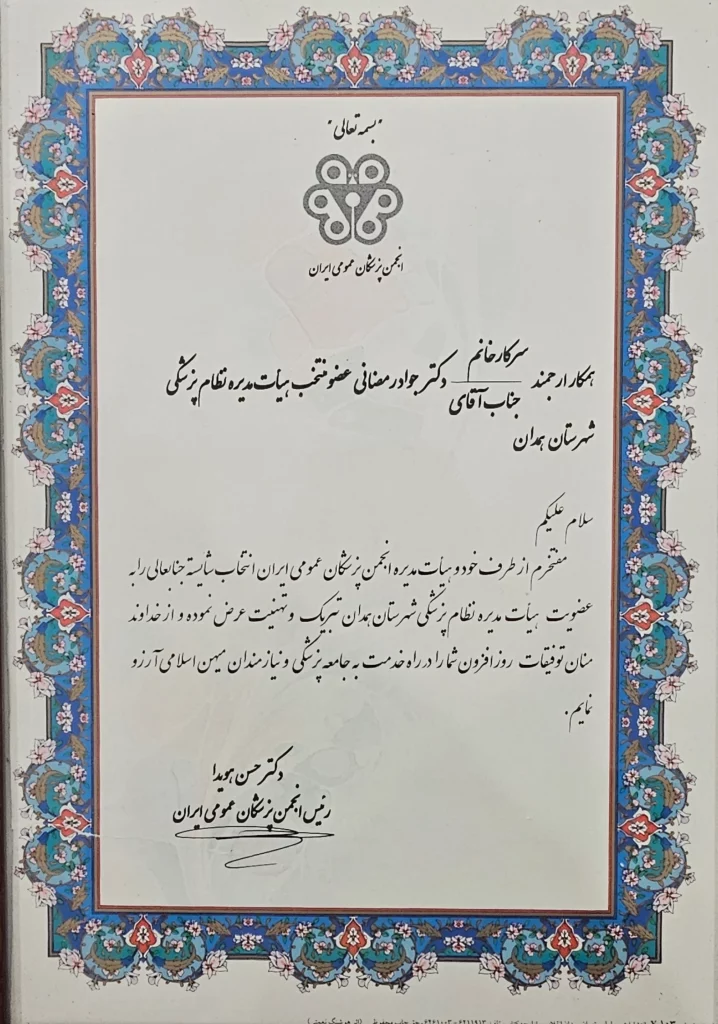 "بسمه تعالی"
انجمن پزشکان عمومی ایران
همکار ارجمند سرکار خانم / جناب آقای دکتر جواد رمضانی عضو منتخب هیأت مدیره نظام پزشکی
شهرستان همدان
سلام علیکم
مفتخرم از طرف خود و هیأت مدیره انجمن پزشکان عمومی ایران انتخاب شایسته جنابعالی را به
عضویت هیأت مدیره نظام پزشکی شهرستان همدان تبریک و تهنیت عرض نموده و از خداوند
منان توفیقات روز افزون شما را در راه خدمت به جامعه پزشکی و نیازمندان میهن اسلامی آرزو
نمایم.
دکتر حسن هویدا
رئیس انجمن پزشکان عمومی ایران